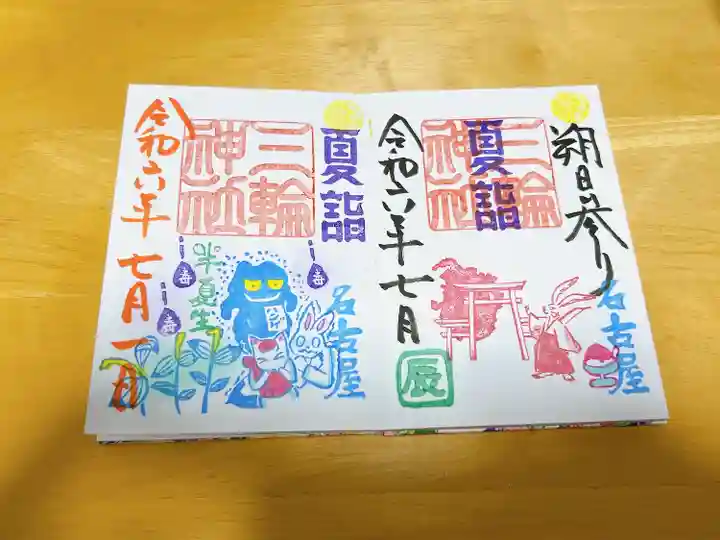 朔日参り
三輪神社
夏詣
名古屋
令和六年七月
辰
夏詣
三輪神社
名古屋
半夏生
毒
毒
令和六年七月一日